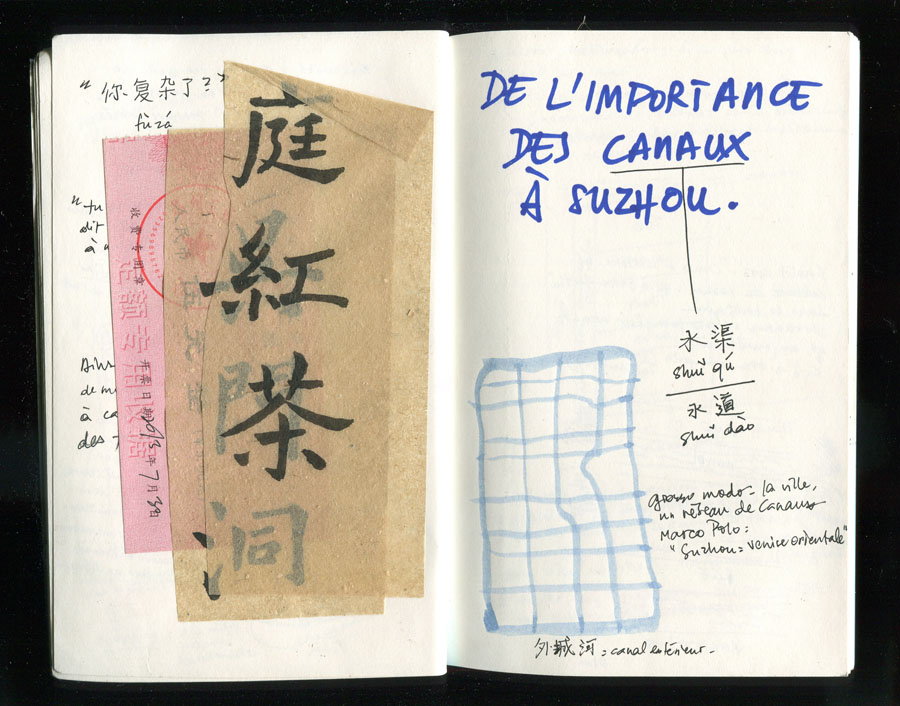 “你复杂了?”
fùzá
“tu
dit
à
定额专用收据
开票日期2013年7月3日
庭
紅
茶
洞
à
de
des
DE L'IMPORTANCE
DES CANAUX
À SUZHOU.
水渠
shuǐ qú
水道
shuǐ dào
grosso modo - la ville,
un réseau de Canaux
Marco Polo:
"Suzhou = Venice orientale"
外城河 = canal extérieur.